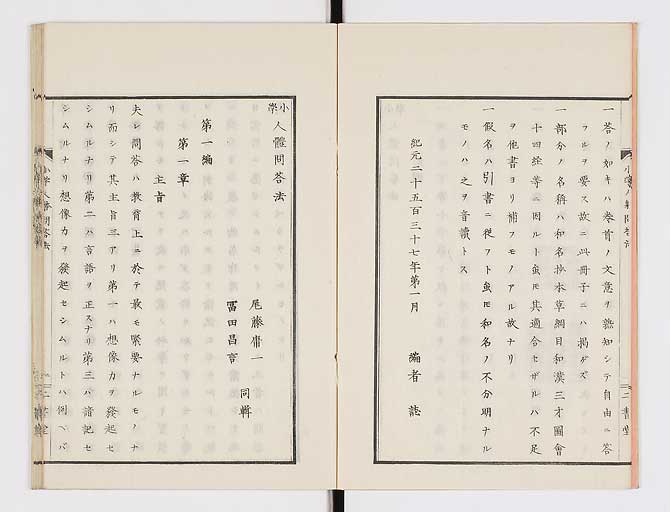 一答ノ如キハ巻首ノ文意ヲ熟知シテ自由ニ答
フルヲ要ス故ニ此冊子ニハ掲ゲズ
一部分ノ名稱ハ和名抄本草綱目和漢三才圖會
十四経等ニ因ルト虽モ其適合セザルハ不足
ヲ他書ヨリ補フモノアル故ナリ
一假名ハ引書ニ從フト虽モ和名ノ不分明ナル
モノハ之ヲ音讀トス
紀元二千五百三十七年第一月 編者 誌
小學人體問答法
尾藤庸一
冨田昌言 同輯
第一編
第一章
主旨
夫レ問答ハ教育上ニ於テ最モ緊要ナルモノナ
リ而シテ其主旨三アリ第一ハ想像力ヲ發起セ
シムルナリ第二ハ言語ヲ正スナリ第三ハ諳記セ
シムルナリ想像力ヲ發起セシムルトハ例ヘバ